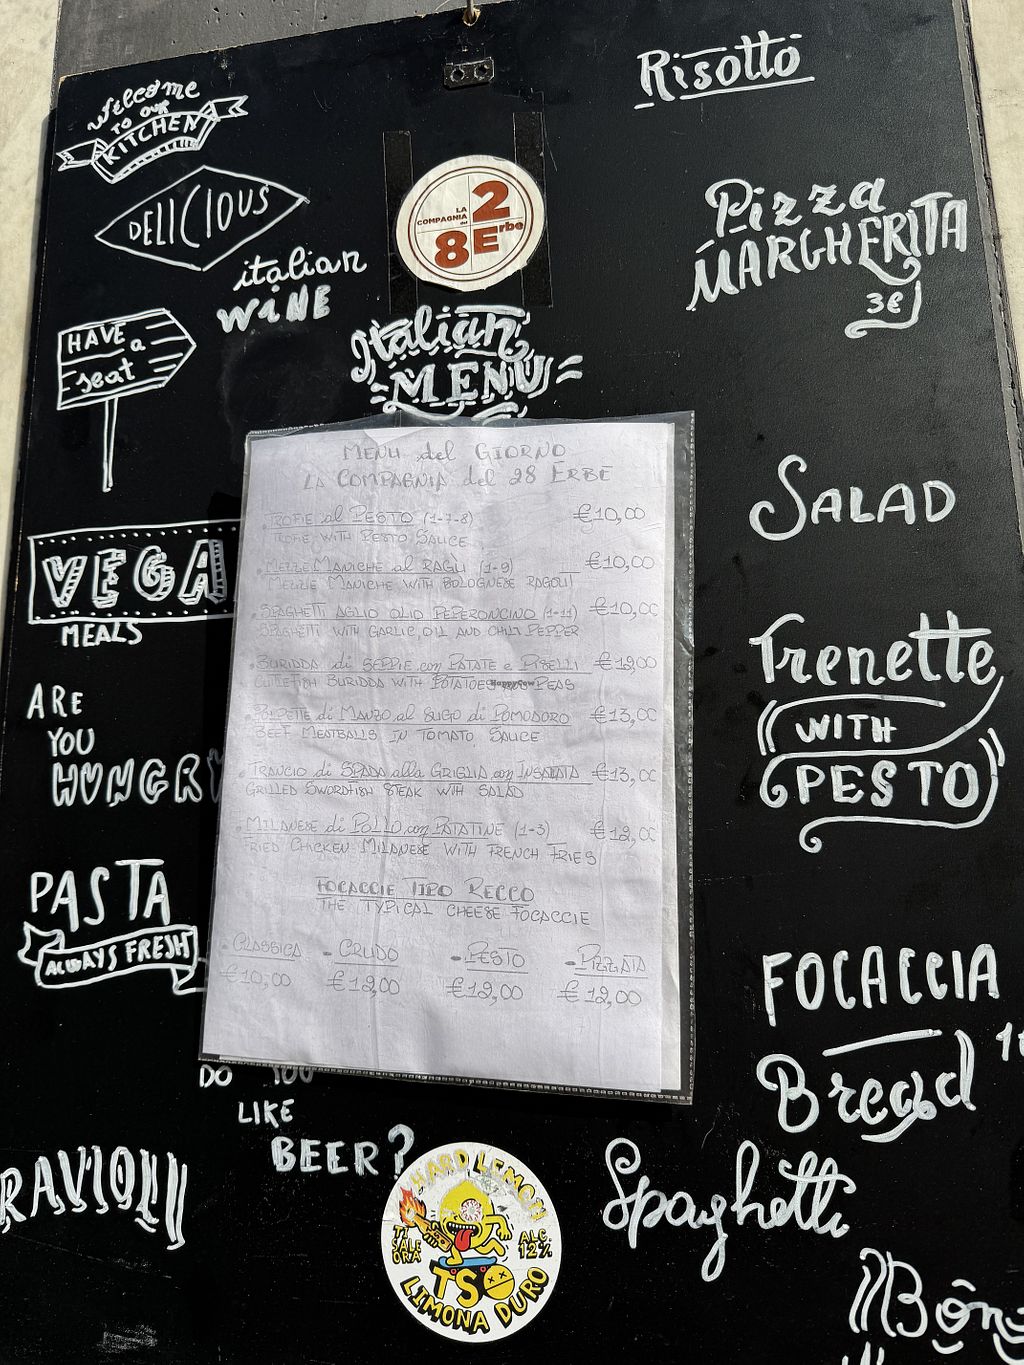 Welcome
TO OUR
KITCHEN
DELICIOUS
italian
WINE
HAVE a
seat
VEGA
MEALS
ARE
YOU
HUNGRY
PASTA
ALWAYS FRESH
RAVIOLI
LA
COMPAGNIA
del
28 Erbe
Italian
MENU
MENU del GIORNO
LA COMPAGNIA del 28 ERBE
• TROFIE al PESTO (1-7-8) €10,00
TROFIE WITH PESTO SAUCE
• MEZZE MANICHE al RAGÙ (1-9) €10,00
MEZZE MANICHE WITH BOLOGNESE RAGOUT
• SPAGHETTI AGLIO OLIO PEPERONCINO (1-11) €10,00
SPAGHETTI WITH GARLIC, OIL AND CHILI PEPPER
• BURIDDA di SEPPIE con PATATE e PISELLI €12,00
CUTTLEFISH BURIDDA WITH POTATOES PEAS
HappyCow
• POLPETTE di MANZO al SUGO di POMODORO €13,00
BEEF MEATBALLS IN TOMATO SAUCE
• TRANCIO di SPADA alla GRIGLIA con INSALATA €13,00
GRILLED SWORDFISH STEAK WITH SALAD
• MILANESE di POLLO con PATATINE (1-3) €12,00
FRIED CHICKEN MILANESE WITH FRENCH FRIES
FOCACCIE TIPO RECCO
THE TYPICAL CHEESE FOCACCIE
- CLASSICA - CRUDO - PESTO - PIZZATA
€10,00 €12,00 €12,00 €12,00
DO YOU
LIKE
BEER?
HARD LEMON
TI
SALE
ORA
ALC.
12%
TSO
LIMONA DURO
Risotto
Pizza
MARGHERITA
3€
SALAD
Trenette
WITH
PESTO
FOCACCIA
Bread
Spaghetti